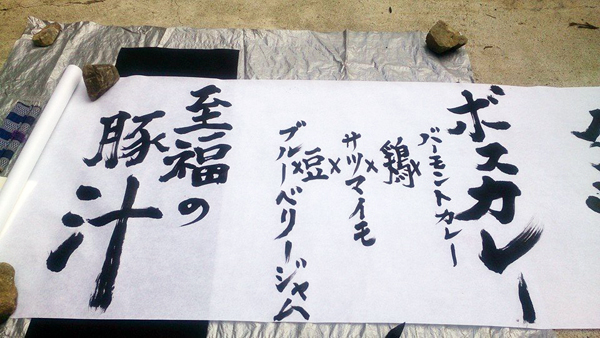 ボスカレー
バーモントカレー
×鶏
×サツマイモ
×豆
×ブルーベリージャム
至福の
豚汁